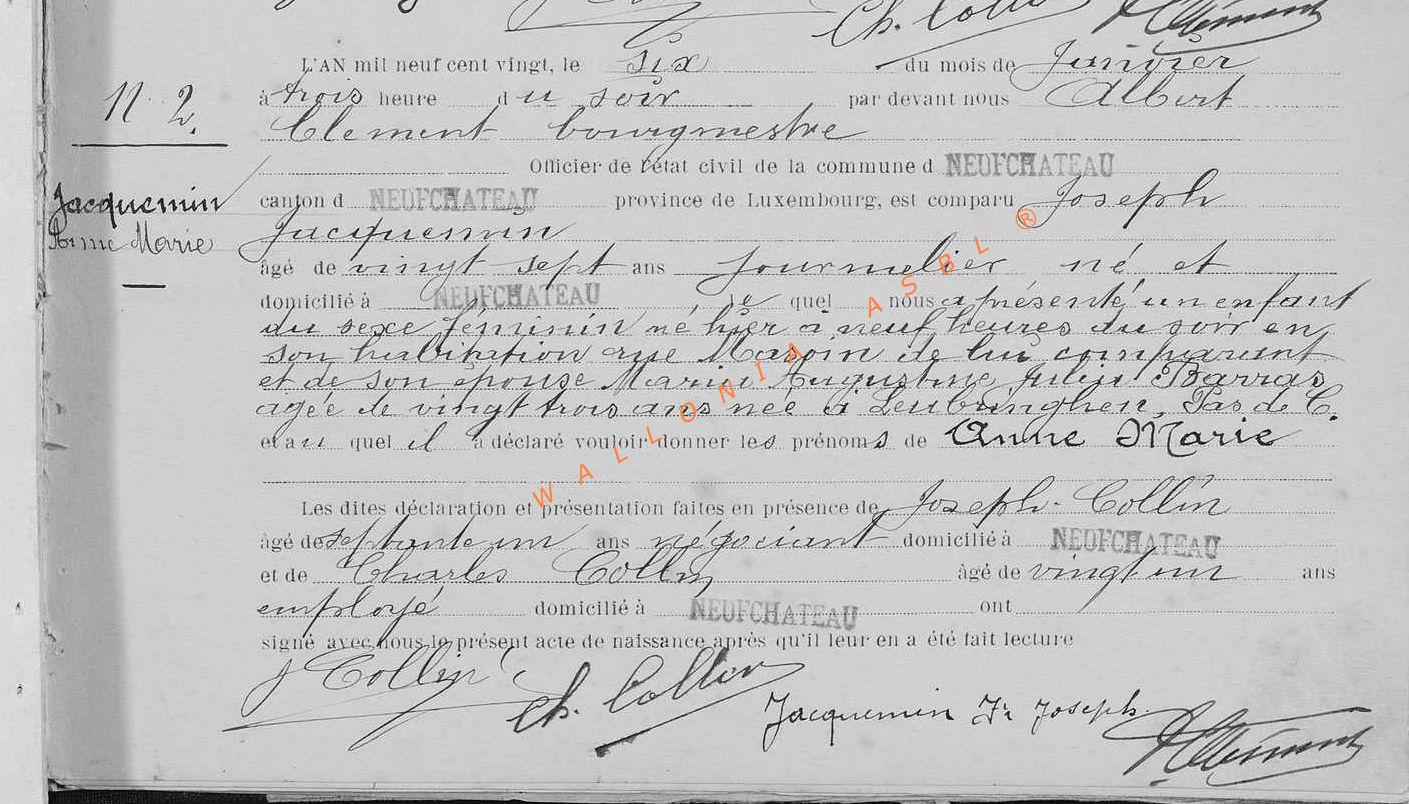 Ch. Collin AClément
L'AN mil neuf cent vingt, le six du mois de Janvier
à trois heure du soir par devant nous Albert
Clement bourgmestre
N 2.
Officier de l'état civil de la commune d NEUFCHATEAU
Jacquemin
Anne Marie
canton d NEUFCHATEAU province de Luxembourg, est comparu Joseph
Jacquemin
âgé de vingt sept ans journalier né et
domicilié à NEUFCHATEAU, le quel nous a présenté un enfant
du sexe féminin né hier à neuf heures du soir en
son habitation rue de lui comparant
et de son épouse Maria Augustine Julia Barras
agée de vingt trois ans née à Leubringhen, Pas de C.
et au quel il a déclaré vouloir donner les prénoms de Anne Marie
Les dites déclaration et présentation faites en présence de Joseph Collin
âgé de septante un ans négociant domicilié à NEUFCHATEAU
et de Charles Collin âgé de vingt un ans
employé domicilié à NEUFCHATEAU ont
signé avec nous le présent acte de naissance après qu'il leur en a été fait lecture
J Collin
Ch. Collin
Jacquemin Fr Joseph.
AClément
WALLONIA ASBL ®